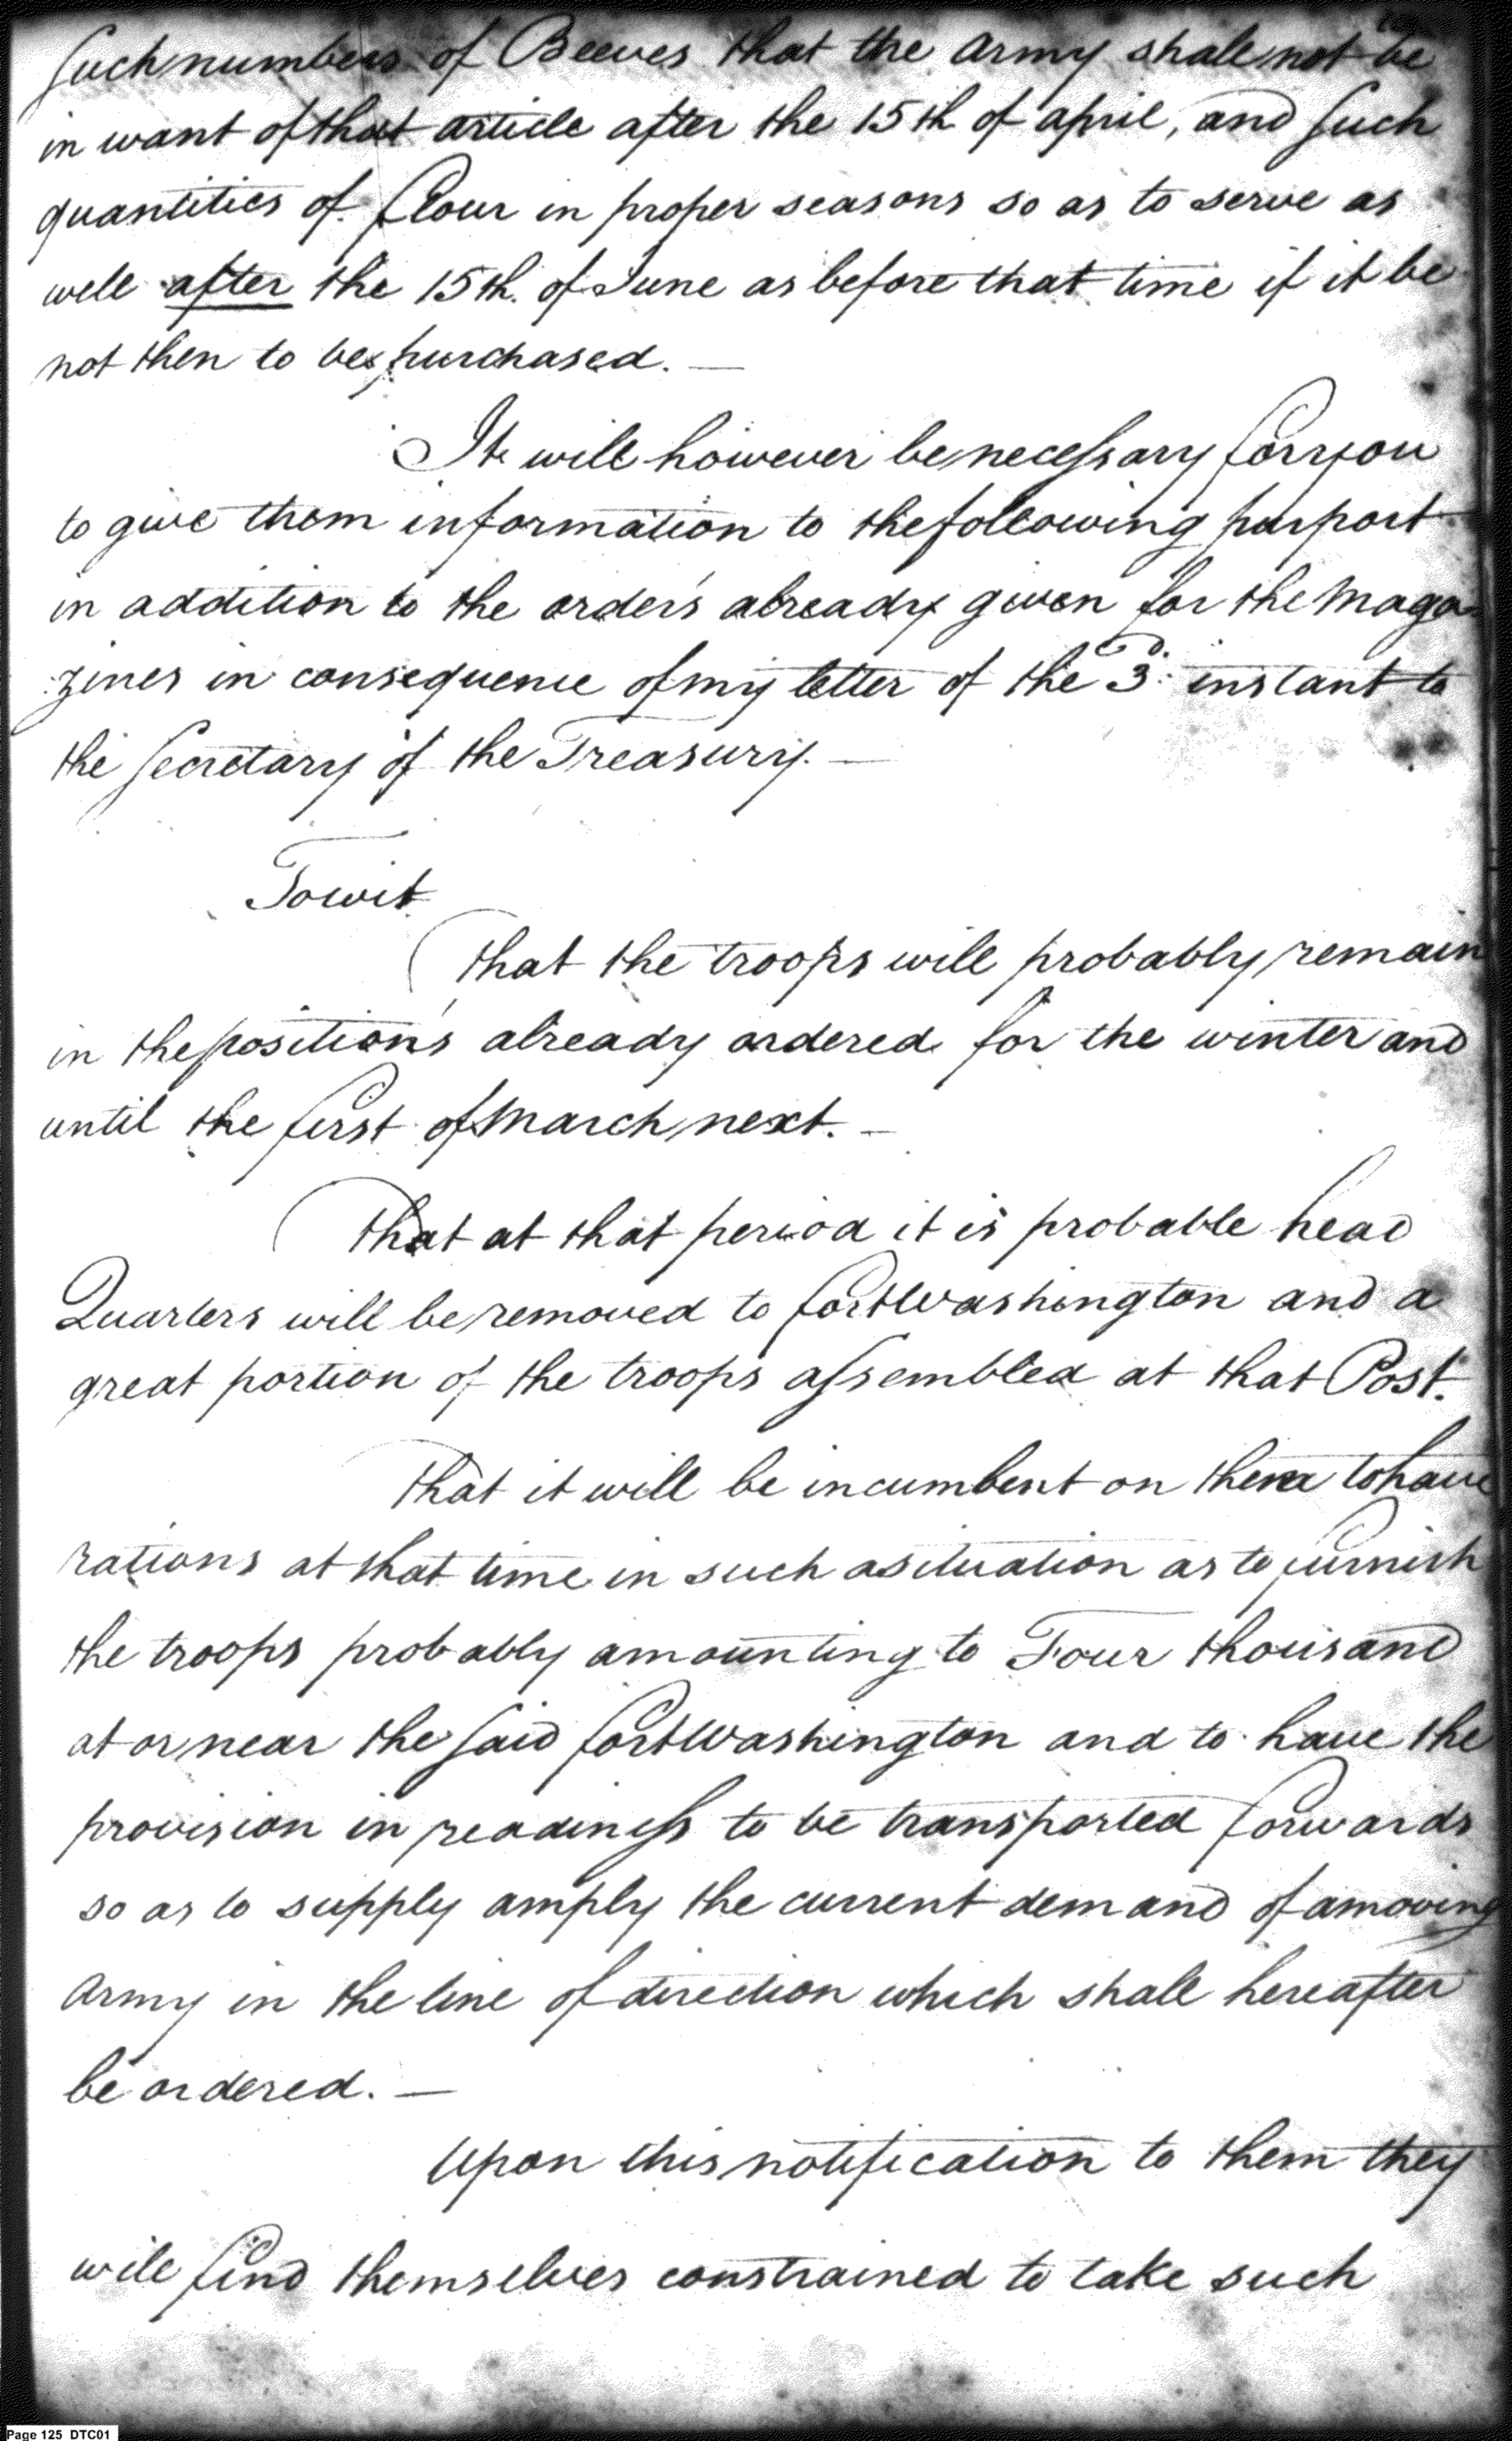 Such numbers of Beeves that the Army shall not be
in want of that article after the 15th of april, and Such
quantities of flour in proper seasons so as to serve as
well after the 15th. of June as before that time if it be
not then to be purchased. —
It will however be necessary for you
to give them information to the following purport
in addition to the orders already given for the Maga-
zines in consequence of my letter of the 3d. instant to
the Secretary of the Treasury. —
Towit
That the troops will probably remain
in the positions already ordered for the winter and
until the first of March next. —
That at that period it is probable head
Quarters will be removed to fort Washington and a
great portion of the troops assembled at that Post.
That it will be incumbent on them to have
rations at that time in such a situation as to furnish
the troops probably amounting to Four thousand
at or near the said fort Washington and to have the
provision in readiness to be transported forwards
so as to supply amply the current demand of a moving
Army in the line of direction which shall hereafter
be ordered. —
Upon this notification to them they
will find themselves constrained to take such
Page 125 DTC01